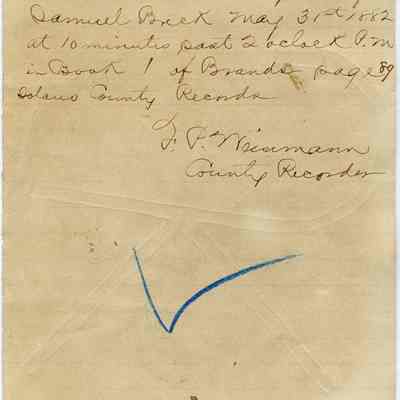 Samuel Breck May 31st 1882
at 10 minutes past 2 oclock P.M
in Book 1 of Brands page 89
Solano County Records
J. P. Wiseman
County Recorder